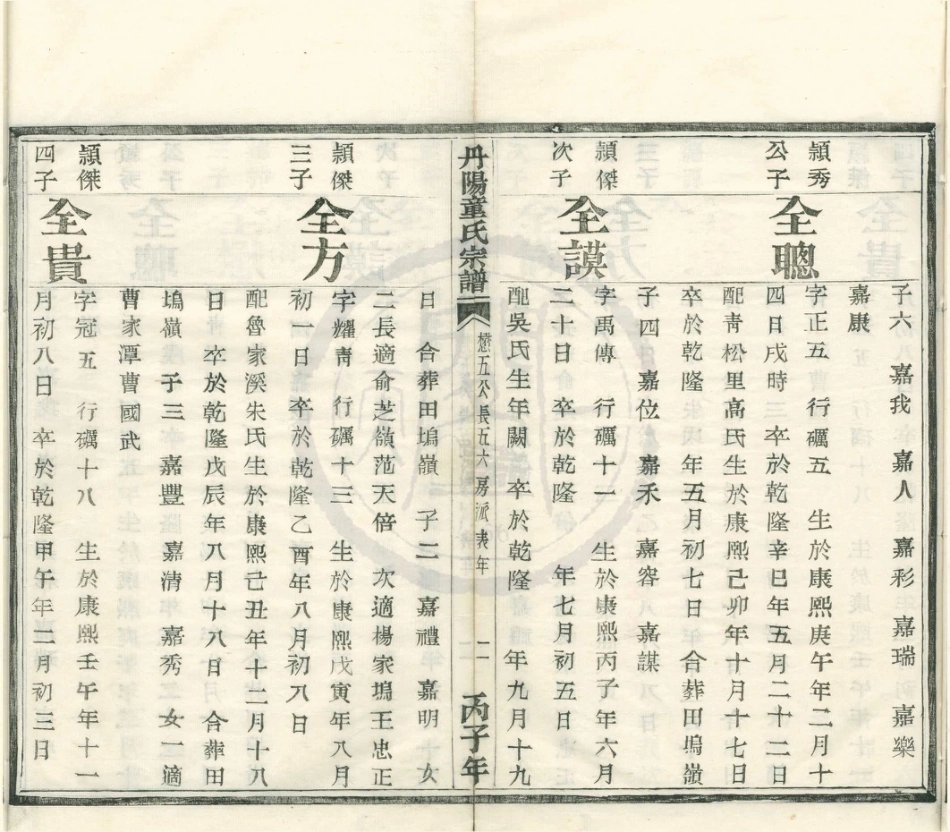 子六 嘉我 嘉人 嘉彩 嘉瑞 嘉樂
嘉康
頴秀
公子
全聰
字正五 行礪五 生於康熙庚午年二月十
四日戌時 卒於乾隆辛巳年五月二十二日
配青松里高氏生於康熙己卯年十月十七日
卒於乾隆 年五月初七日 合葬田塢嶺
子四 嘉位 嘉禾 嘉容 嘉謀
頴傑
次子
全謨
字禹傳 行礪十一 生於康熙丙子年六月
二十日 卒於乾隆 年七月初五日
配吳氏生年闕 卒於乾隆 年九月十九
丹陽童氏宗譜
懋五公長五六房派 年
二
丙子年
日 合葬田塢嶺 子二 嘉禮 嘉明 女
二長適俞芝嶺范天倍 次適楊家塢王忠正
頴傑
三子
全方
字耀青 行礪十三 生於康熙戊寅年八月
初一日 卒於乾隆乙酉年八月初八日
配魯家溪朱氏生於康熙己丑年十二月十八
日 卒於乾隆戊辰年八月十八日 合葬田
塢嶺 子三 嘉豐 嘉清 嘉秀 女二適
曹家潭曹國武
頴傑
四子
全貴
字冠五 行礪十八 生於康熙壬午年十一
月初八日 卒於乾隆甲午年三月初三日